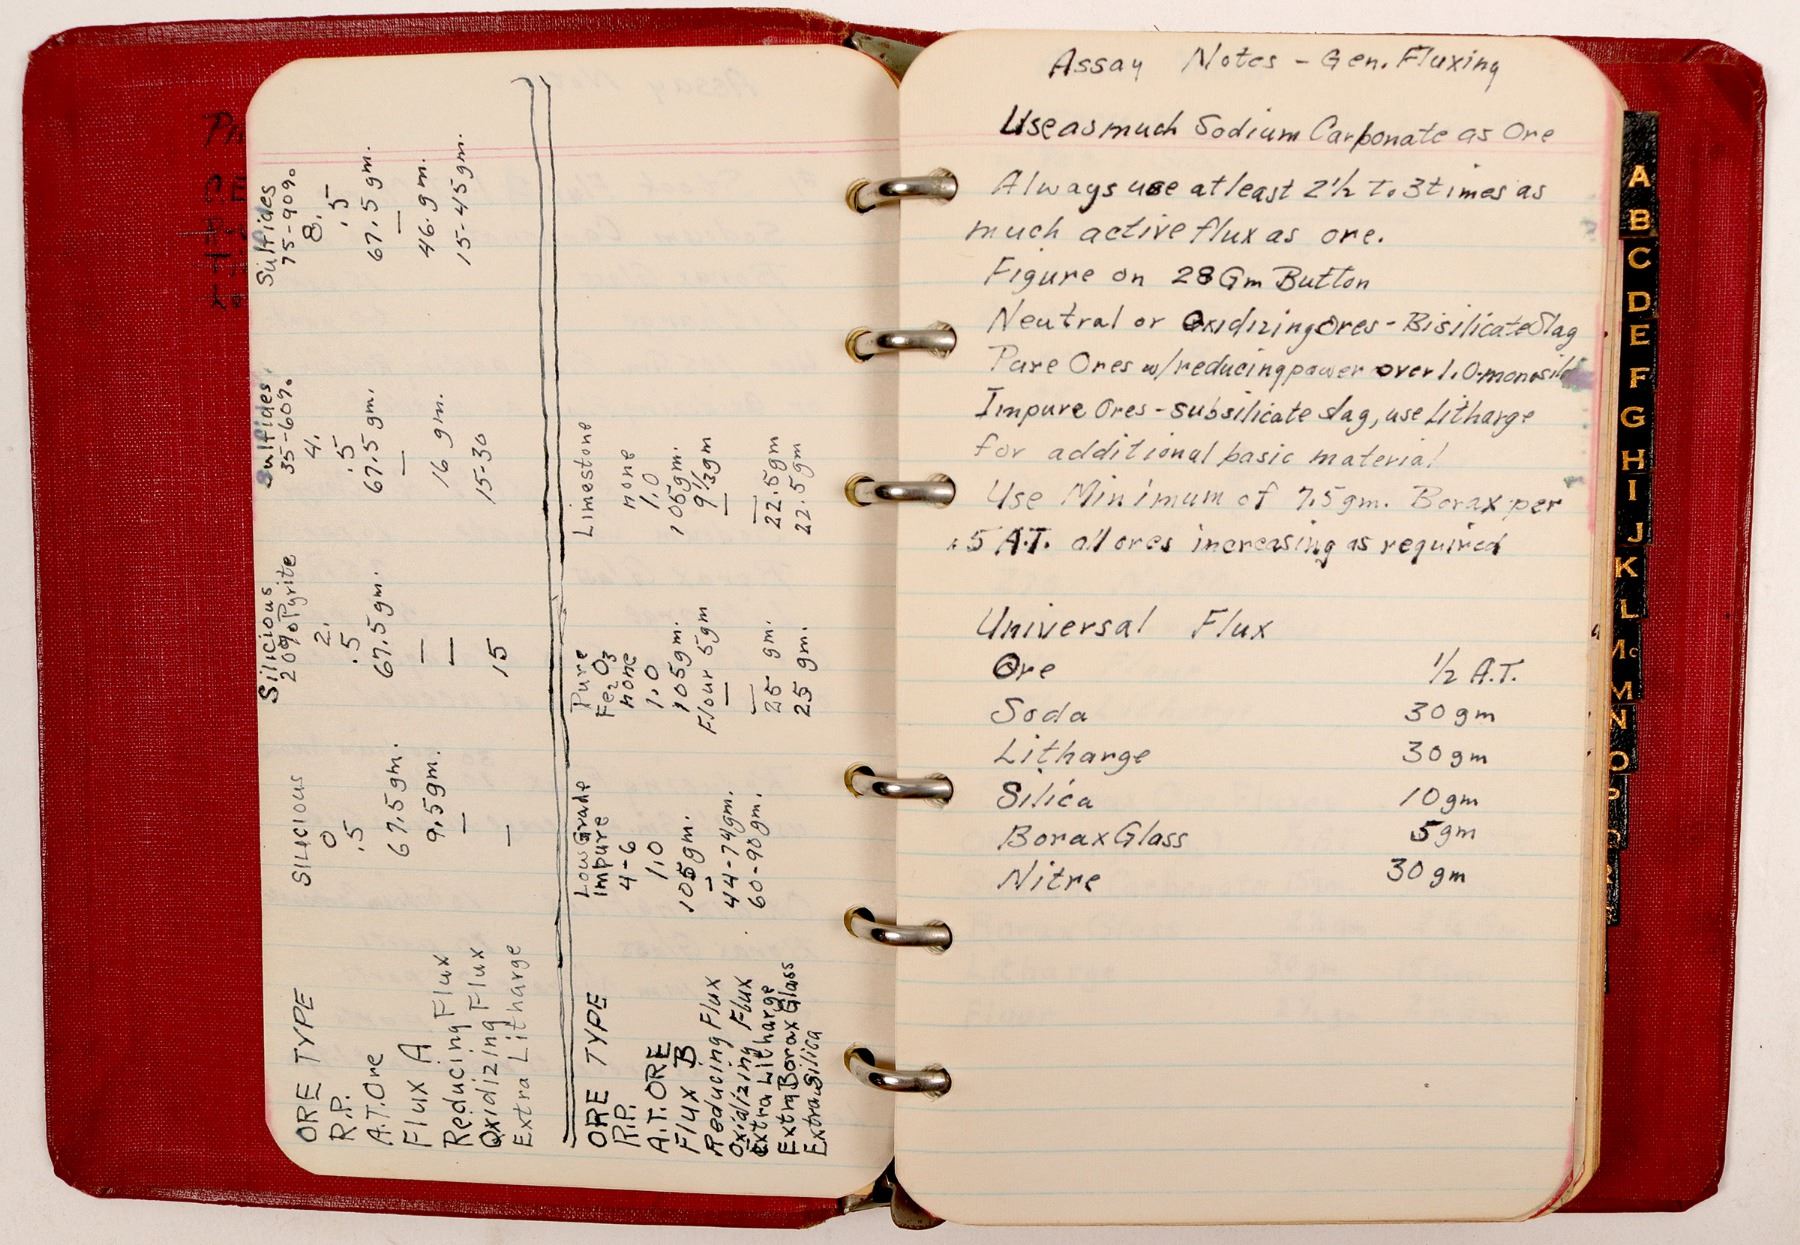 ORE TYPE SILICIOUS Silicious 20% Pyrite Sulfides 35-60% Sulfides 75-90%
R.P. 0 2. 4. 8.
A.T. Ore .5 .5 .5 .5
Flux A 67.5gm. 67.5gm. 67.5gm. 67.5gm.
Reducing Flux 9.5gm. — — —
Oxidizing Flux — — 16 gm. 46.gm.
Extra Litharge — 15 15-30 15-45gm.
ORE TYPE Low Grade Impure Pure Fe2O3 Limestone
R.P. 4-6 none none
A.T. ORE 1.0 1.0 1.0
Flux B 105gm. 105gm. 105gm.
Reducing Flux — Flour 5gm 9 1/3gm
Oxidizing Flux 44-74gm. — —
Extra Litharge 60-90gm. — —
Extra Borax Glass 25 gm. 22.5gm
Extra Silica 25 gm. 22.5gm
Assay Notes - Gen. Fluxing
Use as much Sodium Carbonate as Ore
Always use at least 2½ to 3 times as
much active flux as ore.
Figure on 28 Gm Button
Neutral or Oxidizing Ores - Bisilicate Slag
Pure Ores w/ reducing power over 1.0-
Impure Ores - subsilicate slag, use Litharge
for additional basic material
Use Minimum of 7.5gm. Borax per
.5 A.T. all ores increasing as required
Universal Flux
Ore ½ A.T.
Soda 30 gm
Litharge 30 gm
Silica 10 gm
Borax Glass 5 gm
Nitre 30 gm
A
B
C
D
E
F
G
H
I
J
K
L
Mc
M
N
O